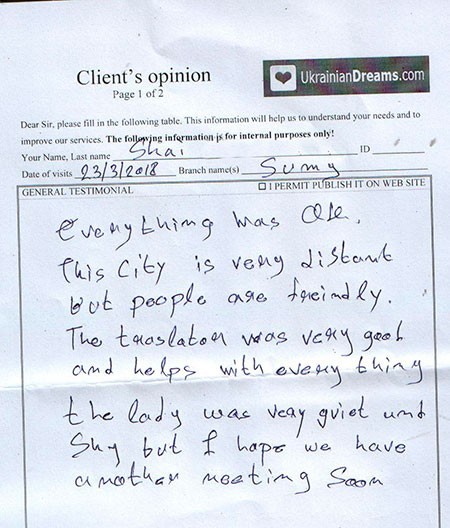 UkrainianDreams.com
Client's opinion
Page 1 of 2
Dear Sir, please fill in the following table. This information will help us to understand your needs and to
improve our services. The following information is for internal purposes only!
Your Name, Last name Shai ID
Date of visits 23/3/2018 Branch name(s) Sumy
GENERAL TESTIMONIAL ☐ I PERMIT PUBLISH IT ON WEB SITE
everything was Ok.
This City is very distant
but people are freindly.
The traslator was very good
and helps with every thing
the lady was very quiet and
Shy but I hope we have
another meeting Soon